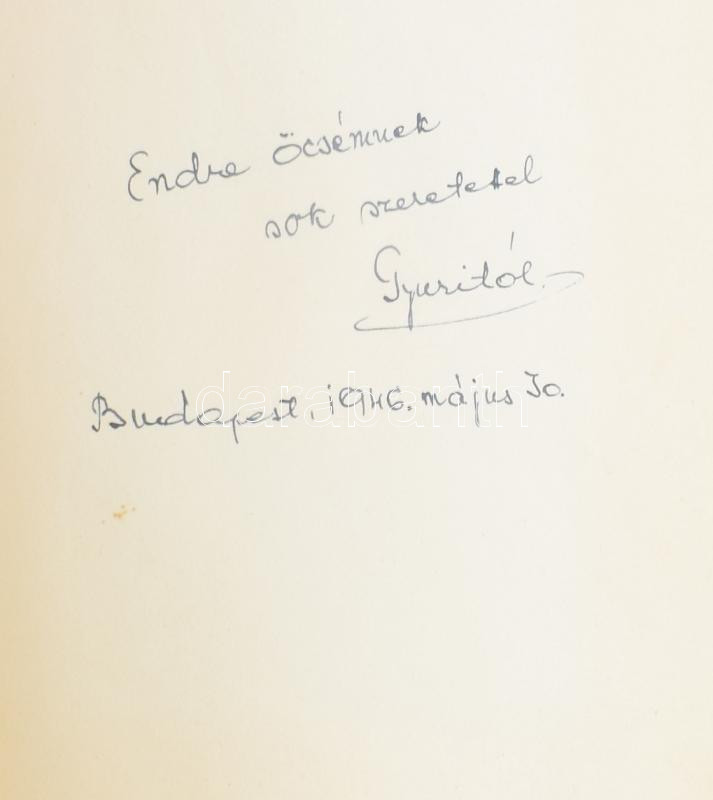 Endre öcsémnek
sok szeretettel
Gyuritól.
Budapest, 1946. május 30.
darabanth